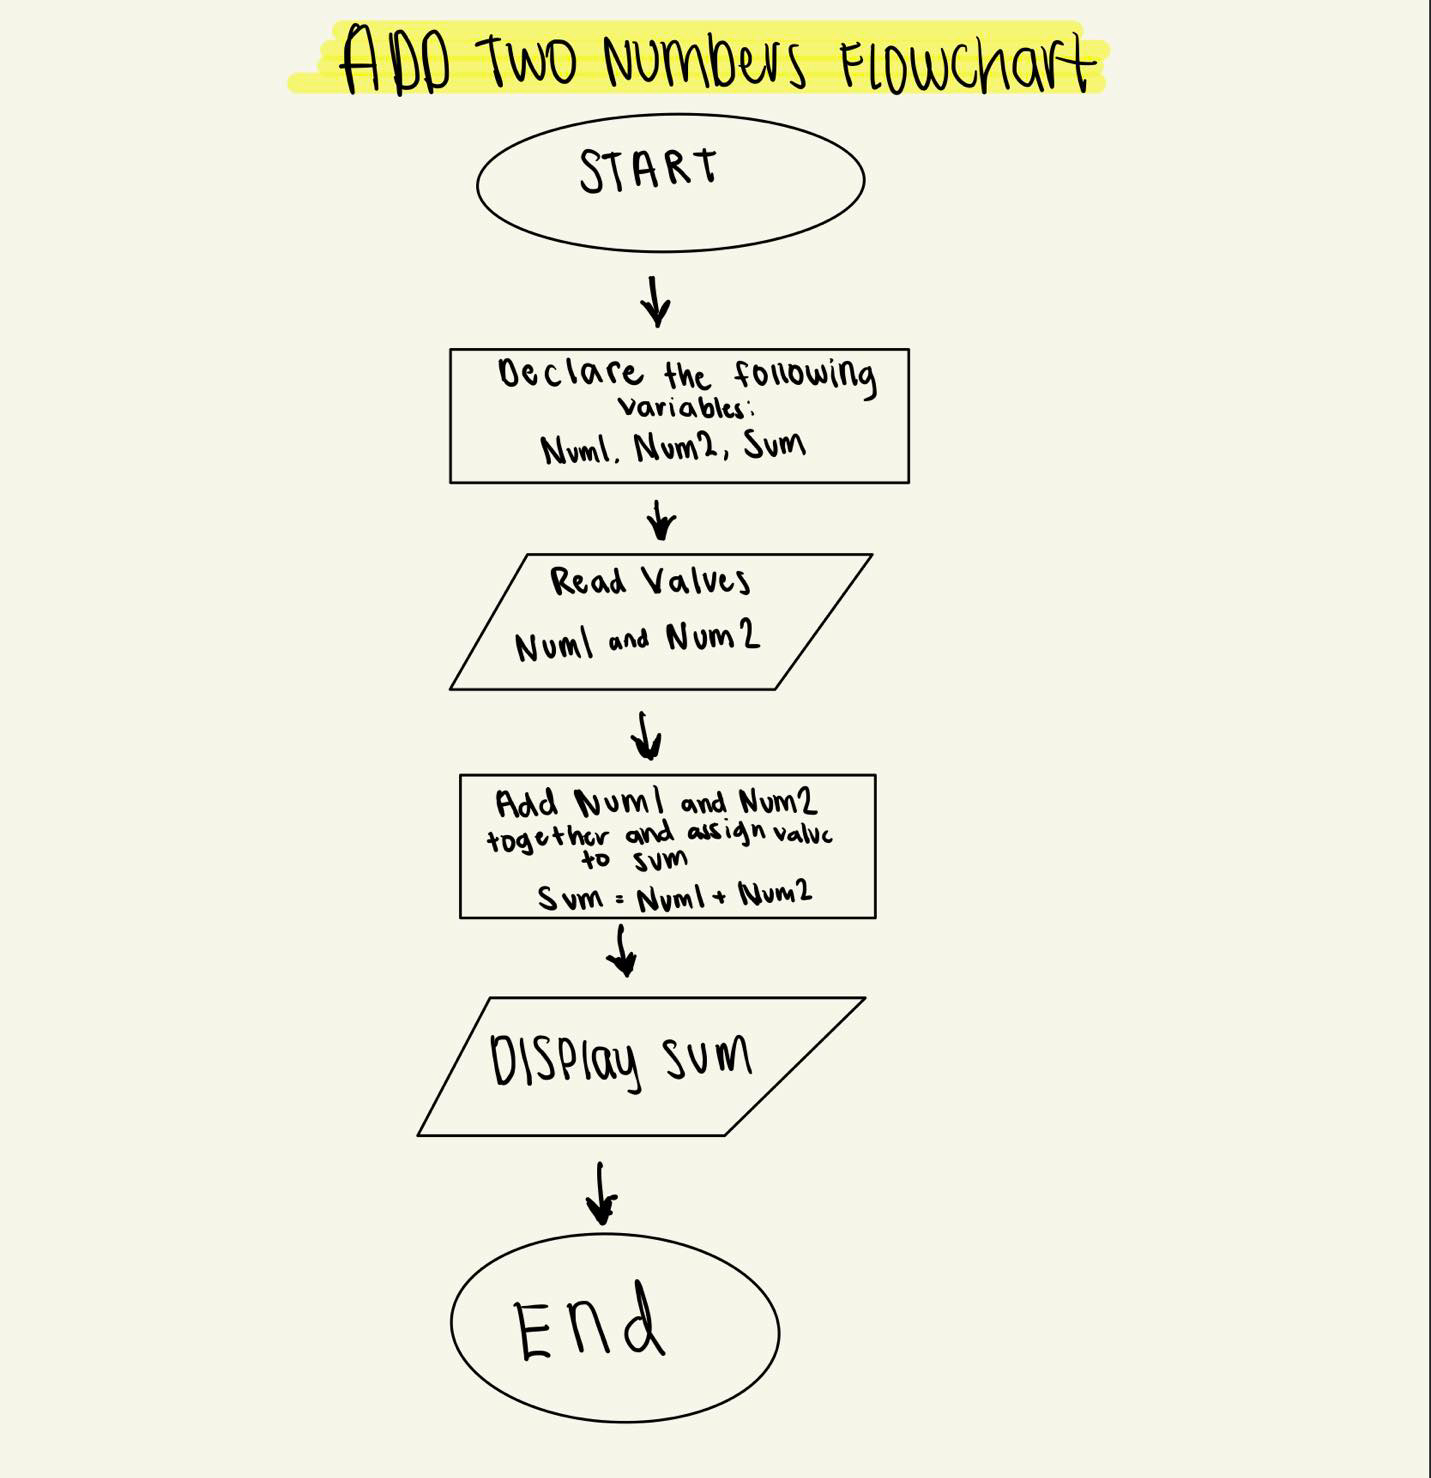 ADD TWO NUMbERS FlOWChart
START
Declare the following
Variables:
Num1, Num2, Sum
Read Values
Num1 and Num2
Add Num1 and Num2
together and assign value
to sum
Sum = Num1 + Num2
DISPlay SUM
End